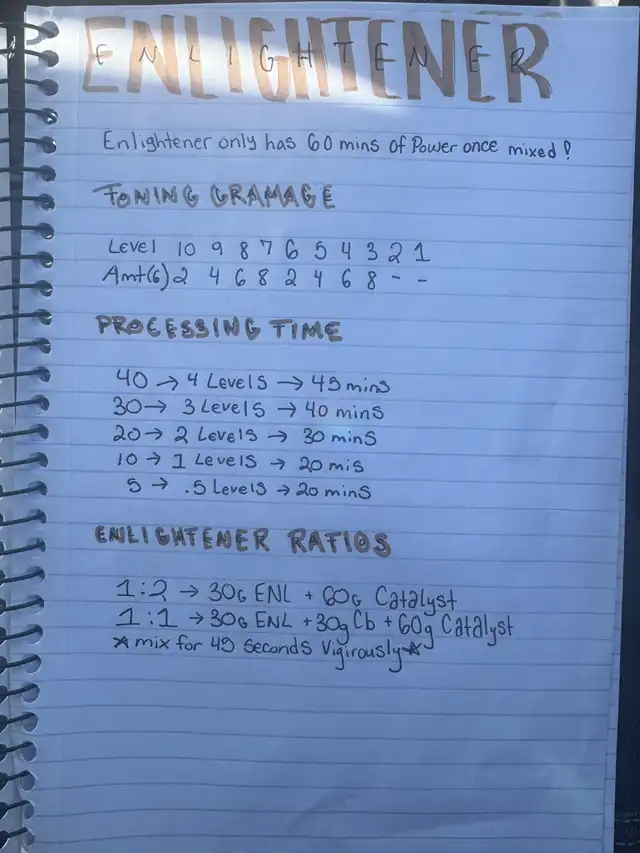 ENLIGHTENER
Enlightener only has 60 mins of Power once mixed!
TONING GRAMAGE
Level 10 9 8 7 6 5 4 3 2 1
Amt(G) 2 4 6 8 2 4 6 8 - -
PROCESSING TIME
40 → 4 Levels → 45 mins
30 → 3 Levels → 40 mins
20 → 2 Levels → 30 mins
10 → 1 Levels → 20 mis
5 → .5 Levels → 20 mins
ENLIGHTENER RATIOS
1:2 → 30G ENL + 60G Catalyst
1:1 → 30G ENL + 30g Cb + 60g Catalyst
☆ mix for 45 seconds Vigirously ☆